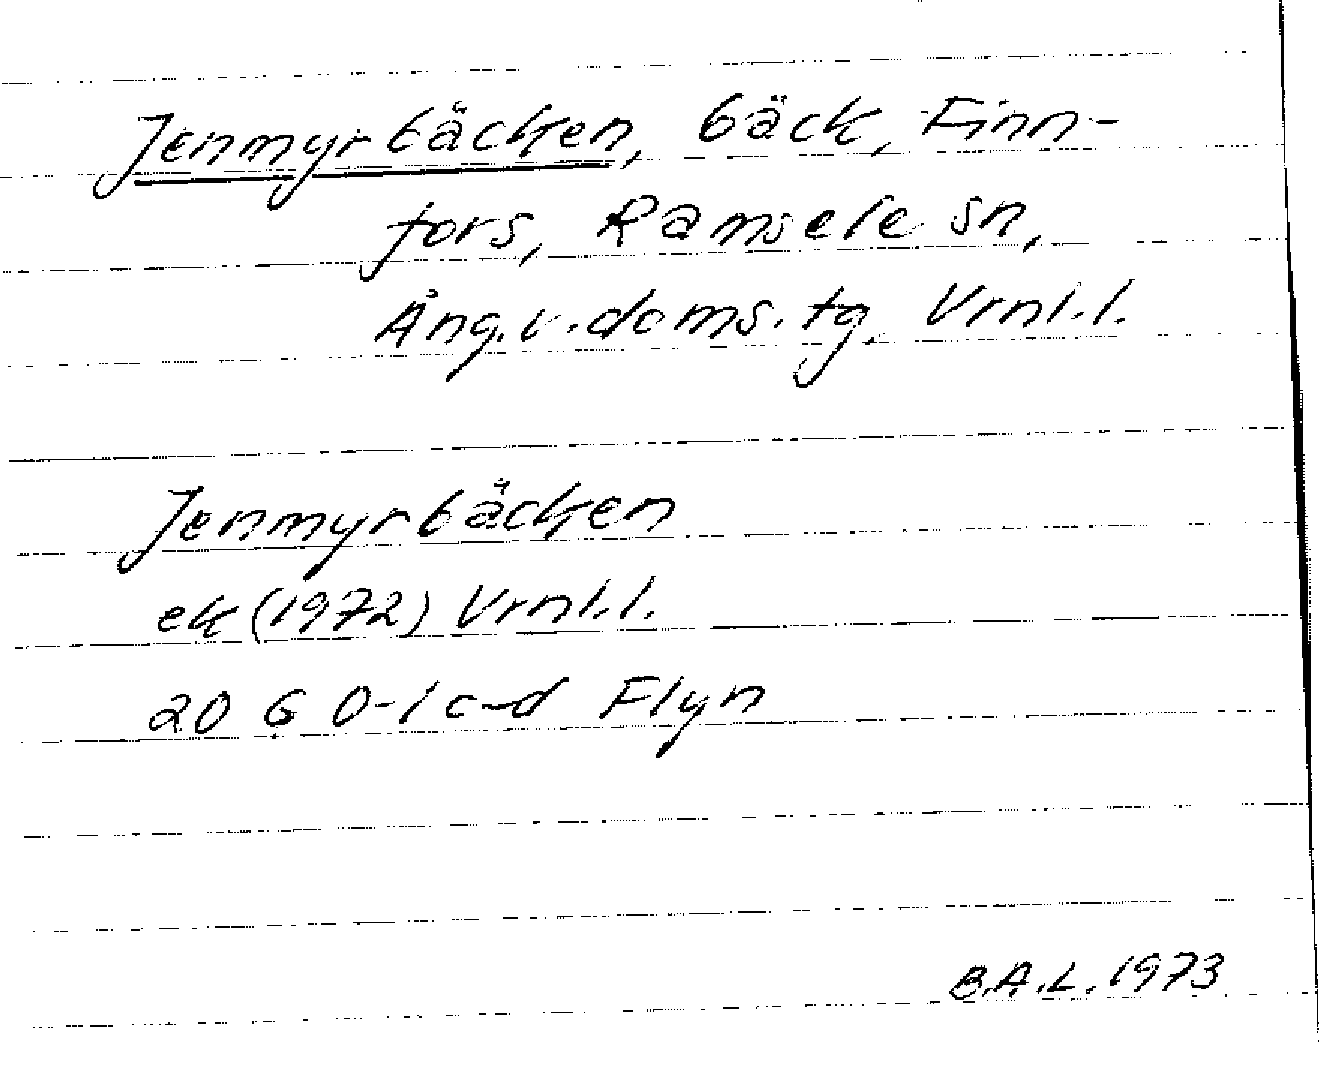 Jenmyrbäcken, bäck, Finn-
fors, Ramsele sn,
Ång.v.doms.tg, Vrnl.l.
Jenmyrbäcken
ek (1972) Vrnl.l.
20 G 0-1 c-d Flyn
B.A.L. 1973